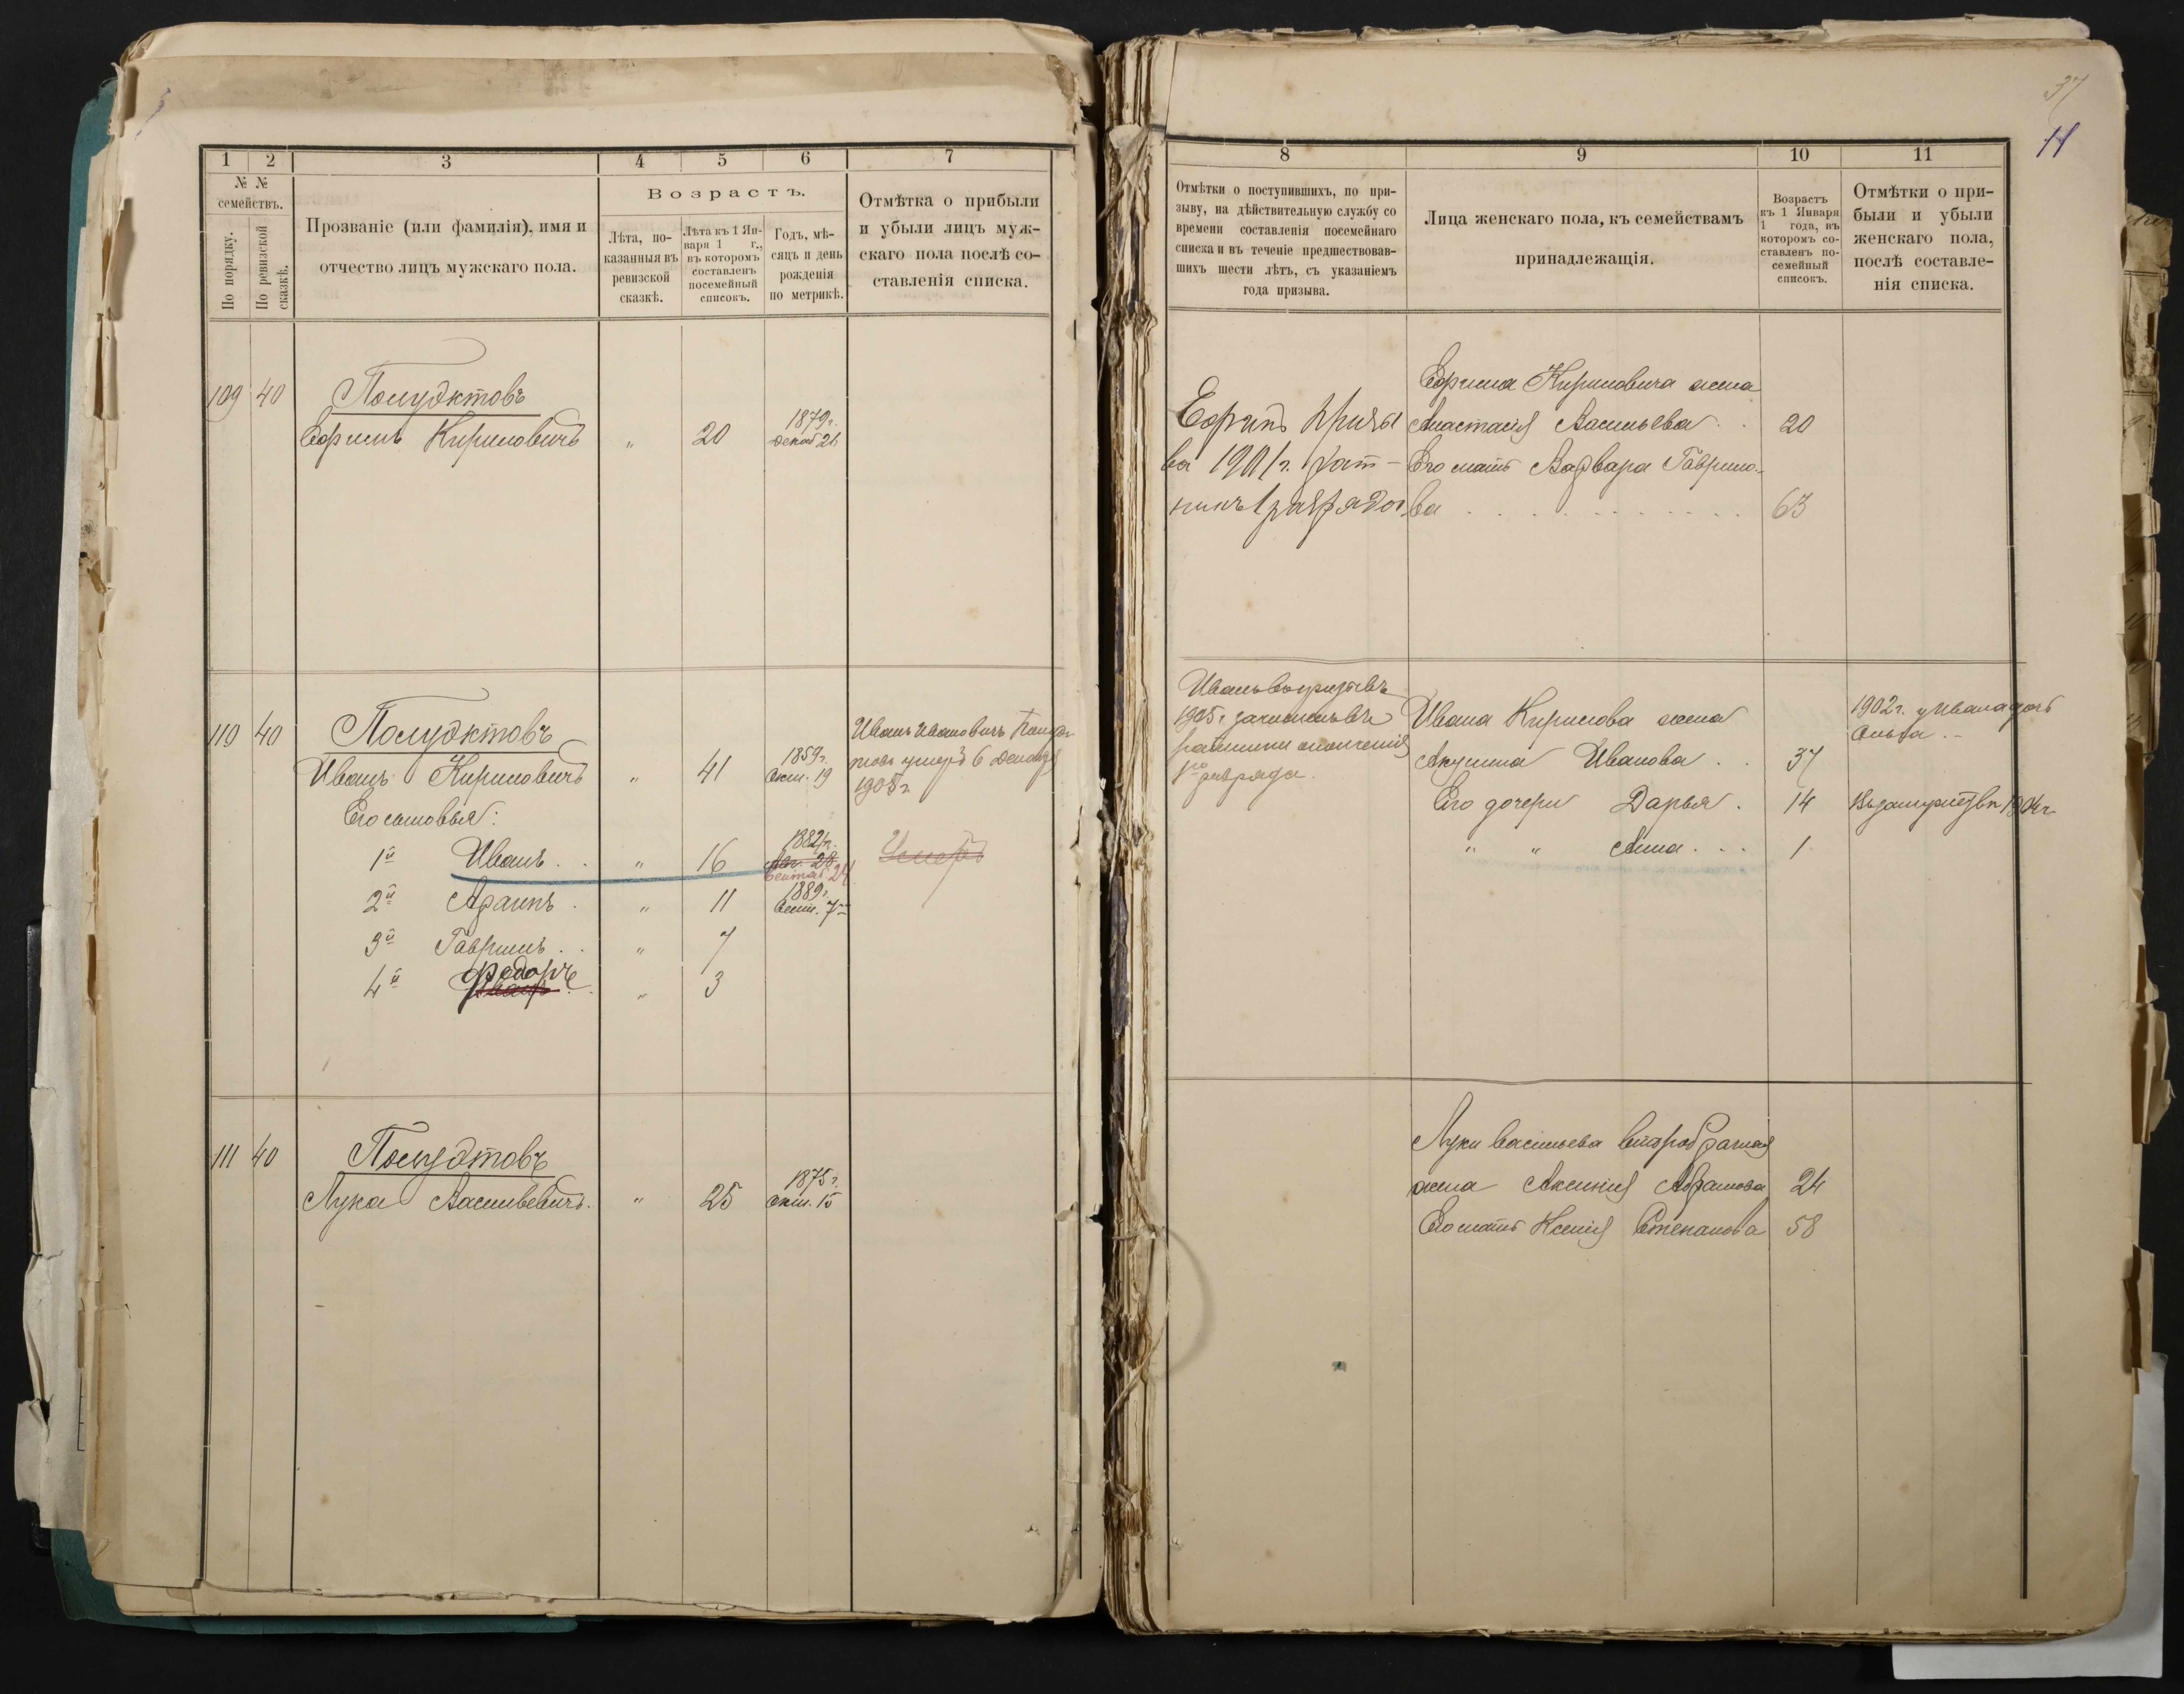 37
11
1 2 3 4 5 6 7
№ №
семействъ.
По порядку.
По ревизской сказкѣ.
Прозваніе (или фамилія), имя и
отчество лицъ мужскаго пола.
Возрастъ.
Лѣта, по-
казанныя въ
ревизской
сказкѣ.
Лѣта къ 1 Ян-
варя 1 г.,
въ которомъ
составленъ
посемейный
списокъ.
Годъ, мѣ-
сяцъ и день
рожденія
по метрикѣ.
Отмѣтка о прибыли
и убыли лицъ муж-
скаго пола послѣ со-
ставленія списка.
109 40
Ефимъ Кириловичъ " 20 1879 г. декаб 21
110 40
Иванъ Кириловичъ " 41 1859 г. Окт. 19
Его сыновья:
1й Иванъ . . " 16 1882 г.
Сентяб 24
2й . " 11 1889 г. Сент. 7
3й Гавриилъ . . " 7
4й Федоръ " 3
Иванъ Ивановичъ
умеръ 6 Декабря
1905 г.
Умеръ
111 40
Лука Васильевичъ. " 25 1875 г. Окт. 15
8 9 10 11
Отмѣтки о поступившихъ, по при-
зыву, на дѣйствительную службу со
времени составленія посемейнаго
списка и въ теченіе предшествовав-
шихъ шести лѣтъ, съ указаніемъ
года призыва.
Лица женскаго пола, къ семействамъ
принадлежащія.
Возрастъ
къ 1 Января
1 года, въ
которомъ со-
ставленъ по-
семейный
списокъ.
Отмѣтки о при-
были и убыли
женскаго пола,
послѣ составле-
нія списка.
Ефимъ призы
ва 1901 г. рат-
никъ 1 разряда
Ефима Кириловича жена
Анастасія Васильева . . 20
Его мать Варвара Гаврило-
ва . . . . . . . . . . 63
Иванъ въ призывъ
1905 г. зачисленъ въ
ратники ополченія
1го разряда.
Ивана Кирилова жена
Акулина Иванова . . 37
Его дочери Дарья . 14
" " Анна . . . 1
1902 г. у Ивана дочь
Ольга . -
Въ замужествѣ 1904 г
Луки Васильева второбрачная
жена Аксинія Абрамова 24
Его мать Ксенія Степанова 58